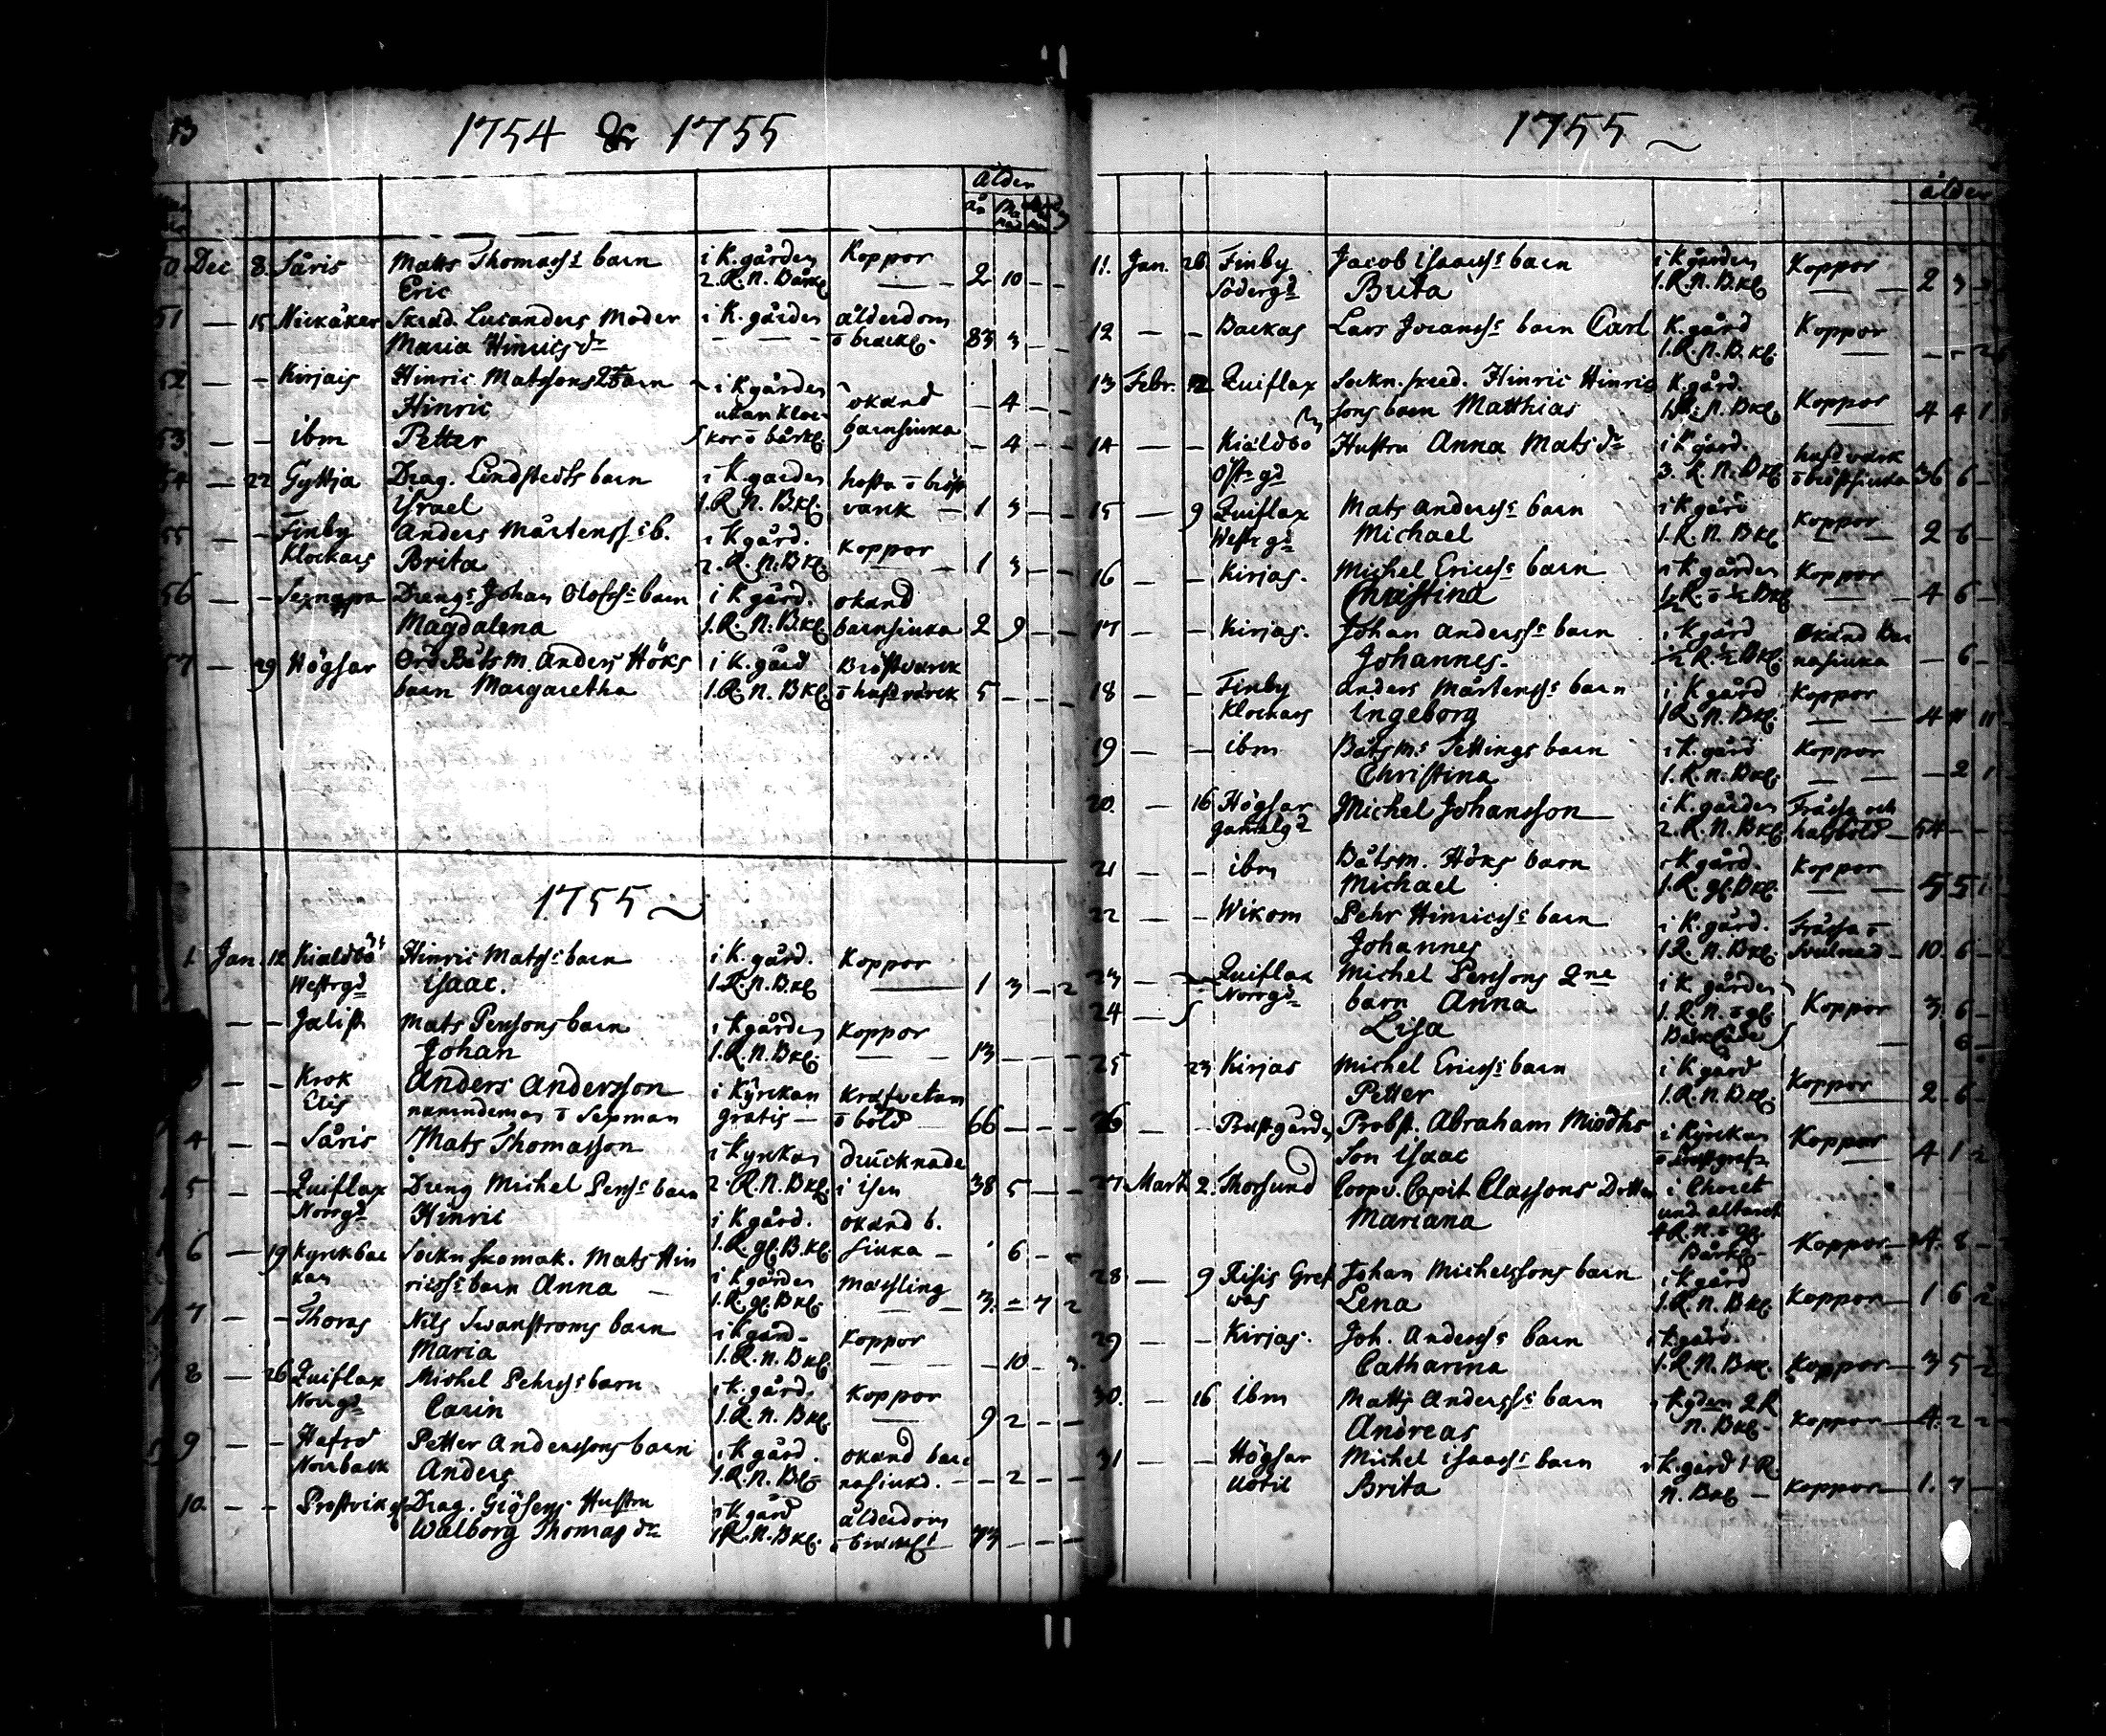 13
1754 & 1755
Ålder
50 Dec 8. Såris Matts Thomass: barn i K. gården Koppor
Eric 2. R. N. Bårkl. 2 10 - -
51 — 15 Nickåker Skräd. Lucanders Moder i K. gården ålderdom
Maria Hinrics dr ō bräckl. 83 3 - -
52 — - Kirjais Hinric Matssons 2 barn i K gården okänd
Hinric utan kloc- - 4 - -
53 — - ibm Petter kor ō bårkl. barnsiuka - 4 - -
54 — 22 Gyttja Drag. Lindstedts barn i K garden hosta ō bröst
Israel 1. R. N. B.kl. värk - 1 3 - -
55 — - Finby Anders Mårtenss: b. i K gård. Koppor
Klockars Brita 2. R. N. B kl. 1 3 - -
56 — - Drengs Johan Olofss: barn i K gård. okänd
Magdalena 1. R. N. B.kl. barnsiuka 2 9 - -
57 — 29 Högsar Ord Båtsm. Anders Höks i K. gård Bröstvärck
barn Margaretha 1. R. N. B kl. ō hufvdvärck 5 - - -
1755
1 Jan. 12 Kialdbo Hinric Matss: barn i K. gård. Koppor
Westrgd Isaac. 1. R. N. B kl. 1 3 - 2
— - Jalist Mats Perssons barn i K gården Koppor
Johan 1. R. N. B kl. 13 - - -
3 — - Krok Anders Andersson i Kyrckan
Eris nämndeman ō Sexman gratis - ō böld 66 - - -
4 — - Såris Mats Thomasson i Kyrckan drucknade
5 — - Quiflax Dreng Michel Perss: barn 2. R. N. B kl. i isen 38 5 - -
Norrgd Hinric i K gård. okänd b.
6 — 19 Kyrckbac Sockn skomak. Mats Hin 1. R. gl. B. kl. siuka - 6 - -
kan ricss: barn Anna - i K gården Mässling
7 — - Thoras Nils Swanströms barn 1. R. gl. B kl. 3. - 7 2
Maria i K gård - Koppor
1. R. N. B kl. - 10 - 3.
8 — 26 Quiflax Michel Pehrss: barn i K. gård. Koppor
Norrgd Carin 1. R. N. B kl. 9 2 - -
9 — - Petter Anderssons barn i K gård. okänd bar
Norrback Anders 1. R. N. B kl. nasiukd. - 2 - -
10 — - Prostvik Drag. Giösens Hustru i K gård ålderdom
Walborg Thomas dr 1 R. N. B kl. ō bräckl. 73 - - -
1755
ålder
11. Jan. 26 Finby Jacob Isaacss: barn i K gården Koppor
Södergd Brita 1. R. N. B.kl. 2 3 -
12 — - Backas Lars Joranss: barn Carl K. gård Koppor
1. R. N. B. kl. - - 2
13 Febr. 2 Quiflax Sockn. skred. Hinric Hinric K. gård.
sons barn Matthias 1. R. N. B kl. Koppor 4 4 1
14 — - Kialdbo Hustru Anna Mats dr i K gård. hufdvärk
Östr gd 3. R. N. B kl. ō bröstsiuka 36 6 -
15 — 9 Quiflax Mats Anderss: barn i K gård Koppor
Westr gd Michael 1. R. N. B kl. 2 6 -
16 — - Kirjas. Michel Ericss: barn i K gården Koppor
Christina ½ R. ō ½ B kl. 4 6 -
17 — - Kirjas. Johan Anderss: barn i K gård Okänd Bar
Johannes. ½ R. ½ B kl. nasiuka - 6 -
18 — - Finby Anders Mårtenss: barn i K gård Koppor
Klockars Ingeborg 1 R. N. B kl. 4 11
19 — - ibm Båtsm: Tettings barn i K. gård Koppor
Christina 1. R. N. B kl. - 2 1
20. — 16 Högsar Michel Johansson i K. gården Fråssa och
Gammalgd 2. R. N. B kl. halsböld - 54 - -
21 — - ibm Båtsm. Höks barn i K gård. Koppor
Michael 1. R. gl. B kl. 5 5 1
22 — - Wikom Pehr Hinricss: barn i K. gård. Fråssa ō
Johannes 1 R. N. B kl. Svulnad - 10. 6 -
23 — Quiflax Michel Perssons 2ne i K gården
Norrgd barn Anna 1. R. N. ō gl. Koppor 3. 6 -
24 — Lisa Bårkläde - 6 -
25 23 Kirjas Michel Ericss: barn i K gård Koppor
Petter 1. R. N. B kl. 2 6 -
26 — - Prestgården Probst. Abraham Miödhs i Kyrckan Koppor
Son Isaac 4 1 2
27. Mart. 2. Thorsund Coopv. Capit Classons Dotter i Choret
Mariana und. altaret
4 R. N. ō gl.
Bårkl. Koppor - 4. 8 -
28 — 9 Risis Gref Johan Michelssons barn i K gård
was Lena 1. R. N. B kl. Koppor - 1 6 2
29 — - Kirjas. Joh. Anderss: barn i K gård.
Catharina 1. R. N. B kl. Koppor - 3 5 2
30. — 16 ibm Matts Anderss: barn i K gden 2 R
Andreas N. B kl. Koppor - 4. 2 2
31 — - Högsar Michel Isaacss: barn i K. gård 1 R.
Uotil Brita N. B kl - Koppor - 1. 7 -